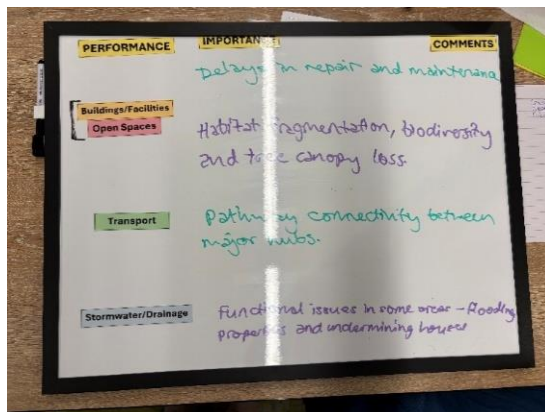 PERFORMANCE
IMPORTANCE
COMMENTS
Delays in repair and maintenance
Buildings/Facilities
Open Spaces
Habitat fragmentation, biodirosity
and tree canopy loss.
Transport
Pathway connectivity between
major hubs.
Stormwater/Drainage
Functional issues in some areas - flooding
properties and undermining houses